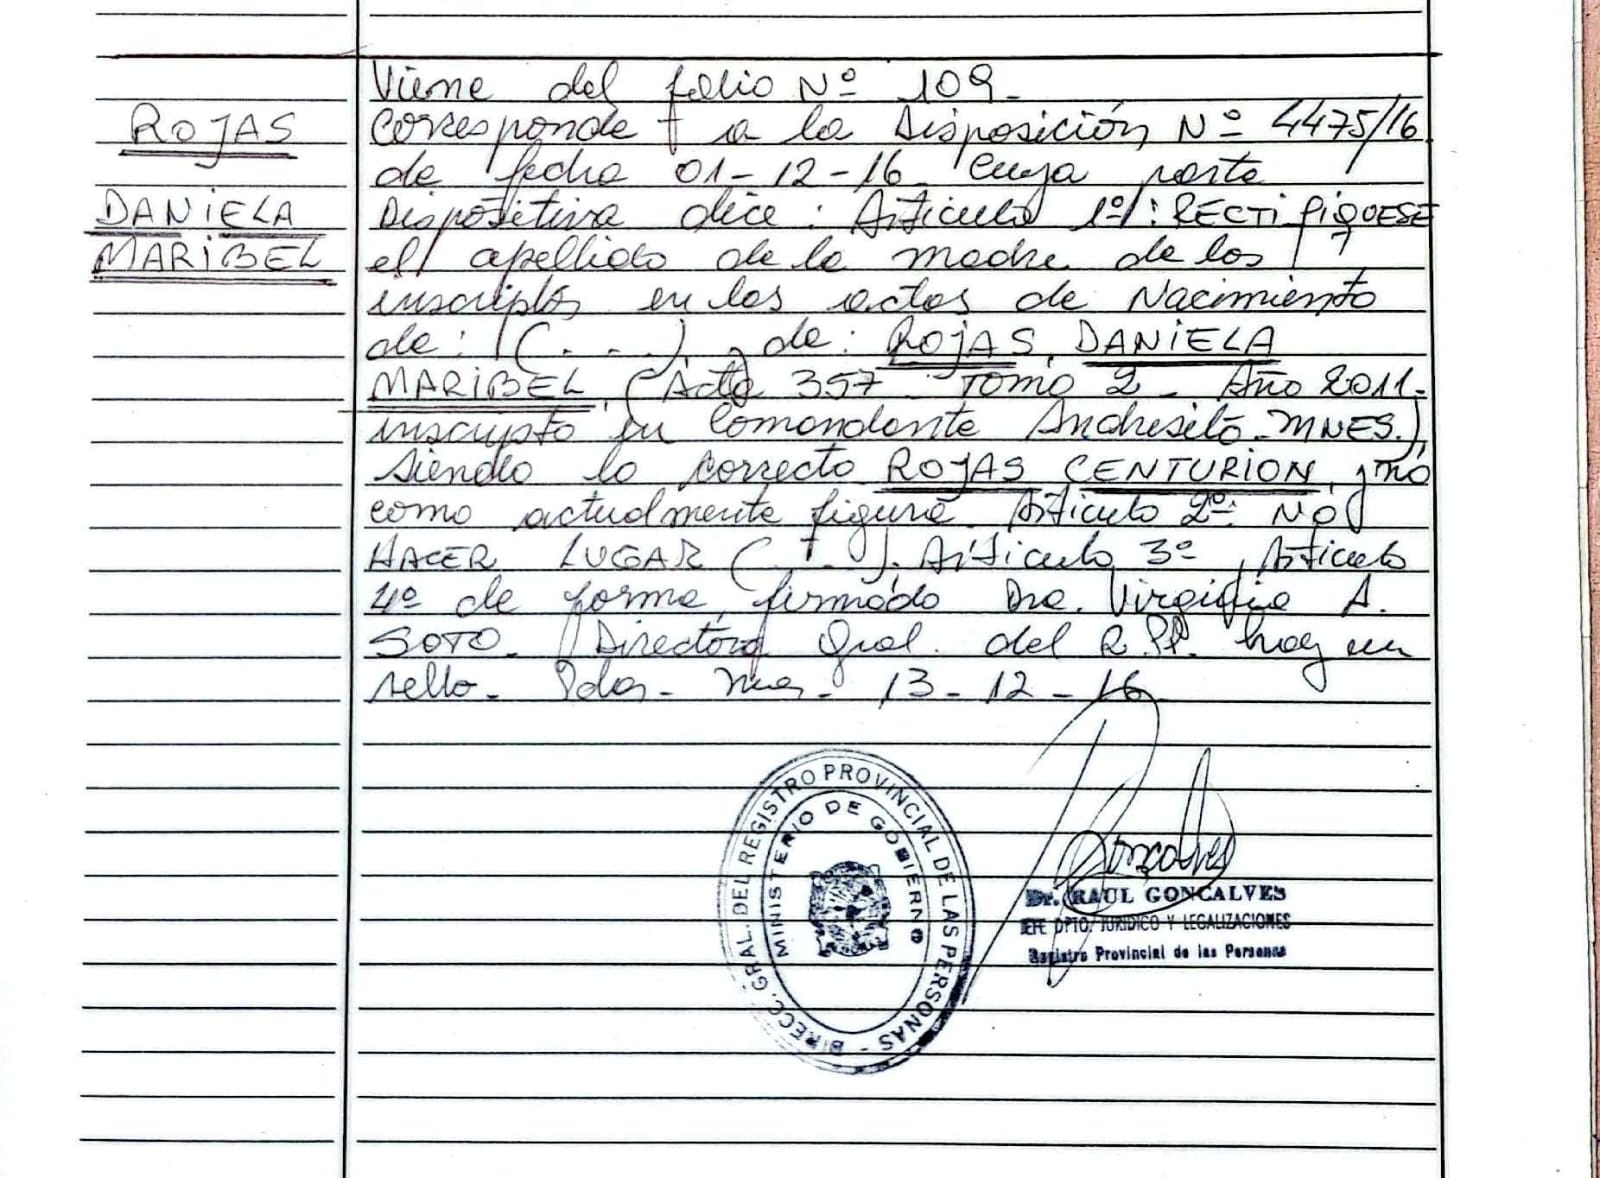 Viene del folio Nº 109-
ROJAS
Corresponde a la Disposición Nº 4475/16
de fecha 01-12-16 Cuya parte
DANIELA
Dispositiva dice: Articulo 1º: RECTIFIQUESE
MARIBEL
el apellido de la madre de los
inscriptos en las actas de Nacimiento
de: (...) y de: ROJAS, DANIELA
MARIBEL, (Acta 357 - Tomo 2 - Año 2011-
inscripto en Comandante Andresito - MNES.)
siendo lo correcto ROJAS CENTURION, y no
como actualmente figura. Articulo 2º: NO
HACER LUGAR (...). Articulo 3º, Articulo
4º de forma, firmado Dra. Virginia A.
SOTO. Directora Gral. del R.PP. hay un
sello. Pdas - Mnes - 13-12-16
DIRECC. GRAL. DEL REGISTRO PROVINCIAL DE LAS PERSONAS -
MINISTERIO DE GOBIERNO
Goncalves
Dr. RAUL GONCALVES
JEFE DPTO. JURIDICO Y LEGALIZACIONES
Registro Provincial de las Personas